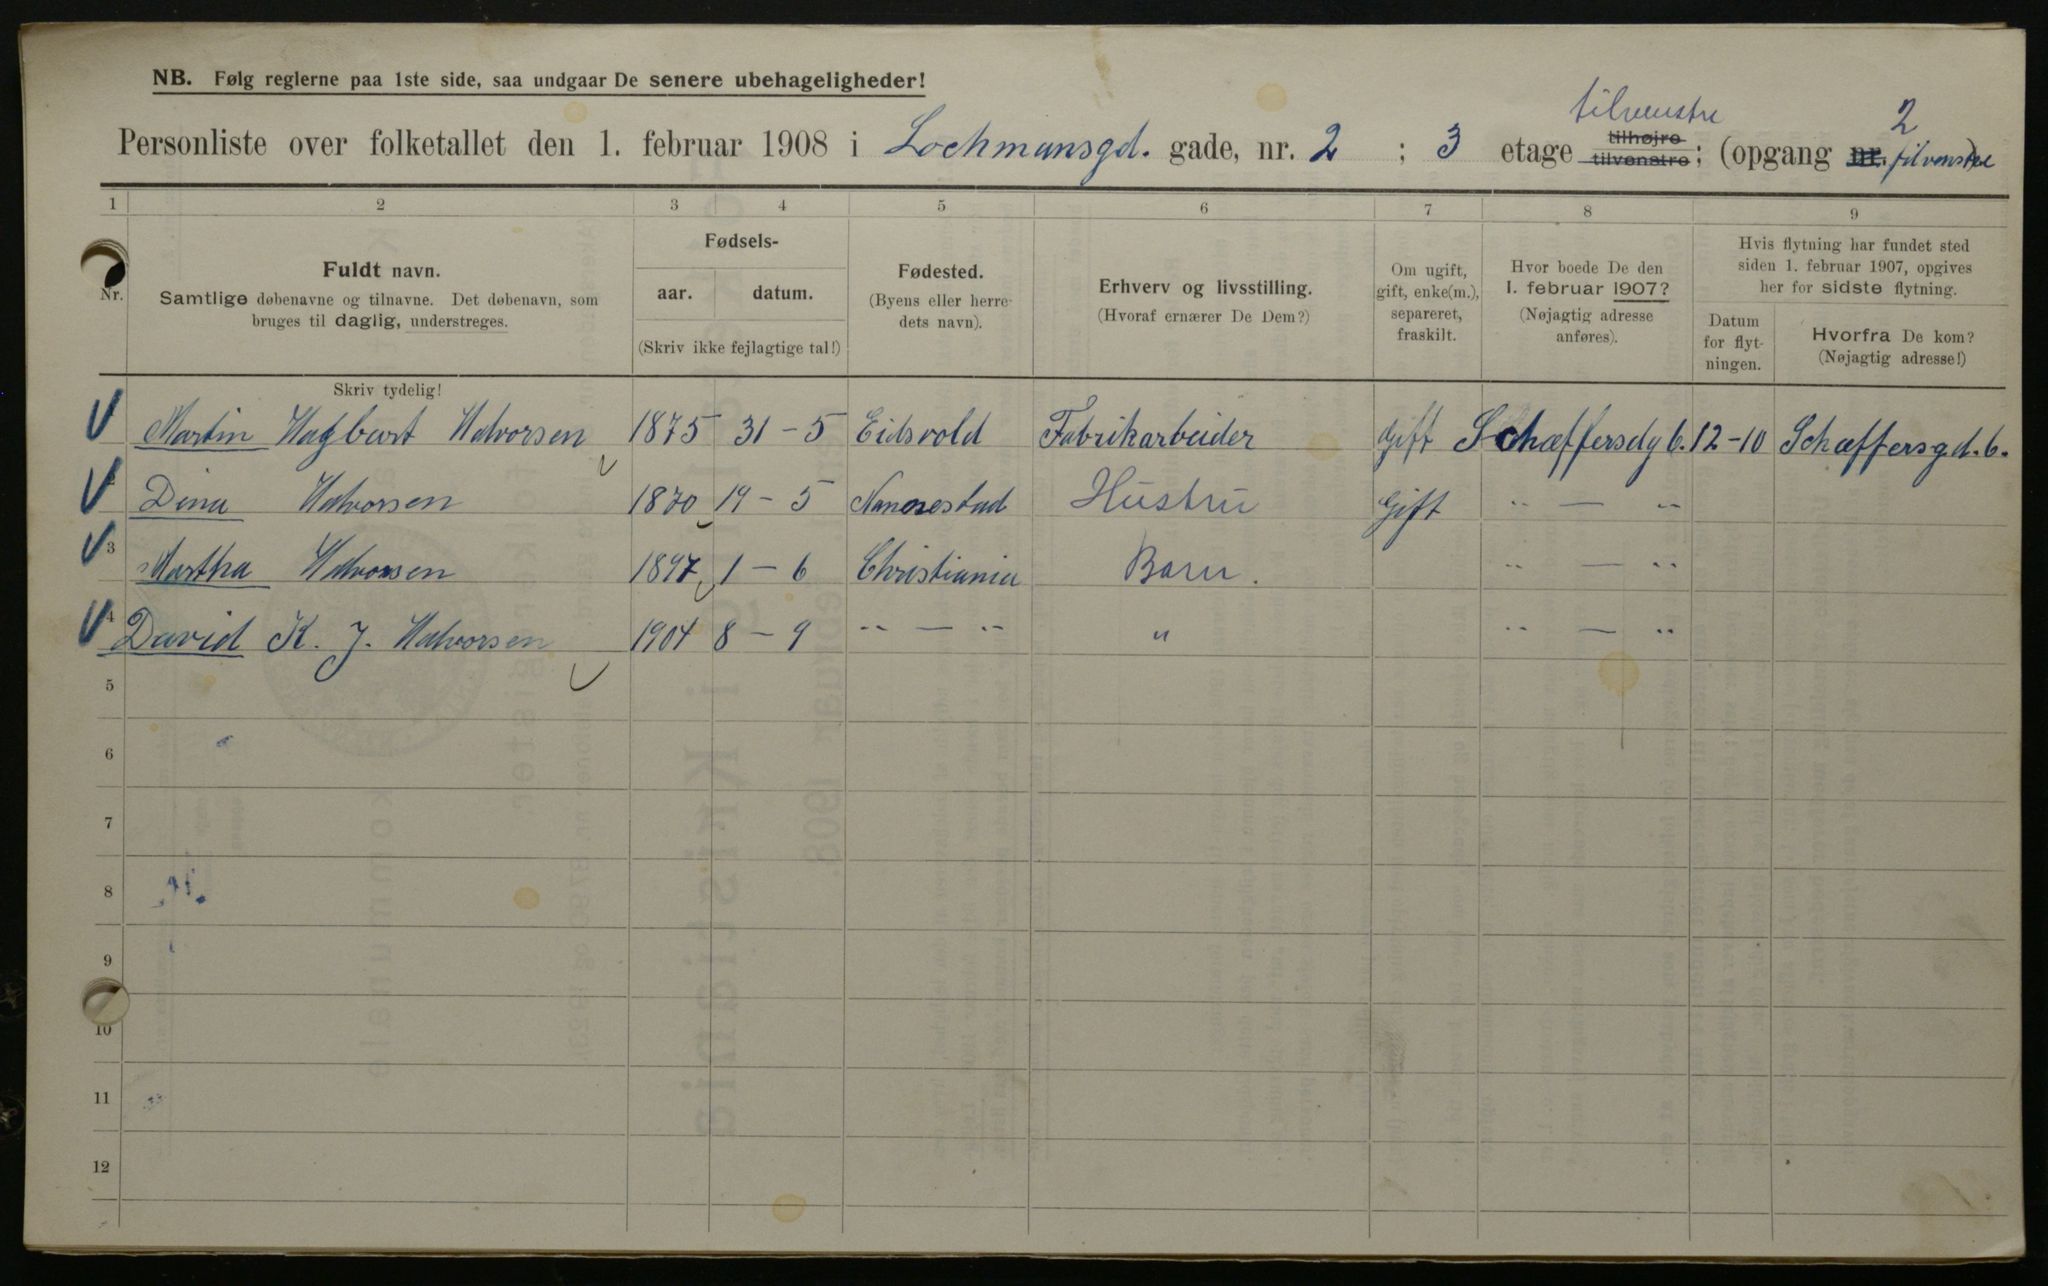 NB. Følg reglerne paa 1ste side, saa undgaar De senere ubehageligheder!
tilvenstre 2
Personliste over folketallet den 1. februar 1908 i Lochmansgd. gade, nr. 2 ; 3 etage tilhøjre tilvenstre ; (opgang nr. tilvenstre)
1 2 3 4 5 6 7 8 9
Nr.
Fuldt navn.
Samtlige døbenavne og tilnavne. Det døbenavn, som
bruges til daglig, understreges.
Skriv tydelig!
Fødsels-
aar. datum.
(Skriv ikke fejlagtige tal!)
Fødested.
(Byens eller herre-
dets navn).
Erhverv og livsstilling.
(Hvoraf ernærer De Dem?)
Om ugift,
gift, enke(m.),
separeret,
fraskilt.
Hvor boede De den
1. februar 1907?
(Nøjagtig adresse
anføres).
Hvis flytning har fundet sted
siden 1. februar 1907, opgives
her for sidste flytning.
Datum
for flyt-
ningen.
Hvorfra De kom?
(Nøjagtig adresse!)
1 Martin Hagbart Halvorsen 1875 31-5 Eidsvold Fabrikarbeider Gift Schæffersdg 6. 12-10 Schæffersgd. 6.
2 Dina Halvorsen 1870 19-5 Nannestad Hustru Gift " — "
3 Martha Halvorsen 1897 1-6 Christiania Barn. " — "
4 David K. J. Halvorsen 1904 8-9 " — " " " — "
5
6
7
8
9
10
11
12